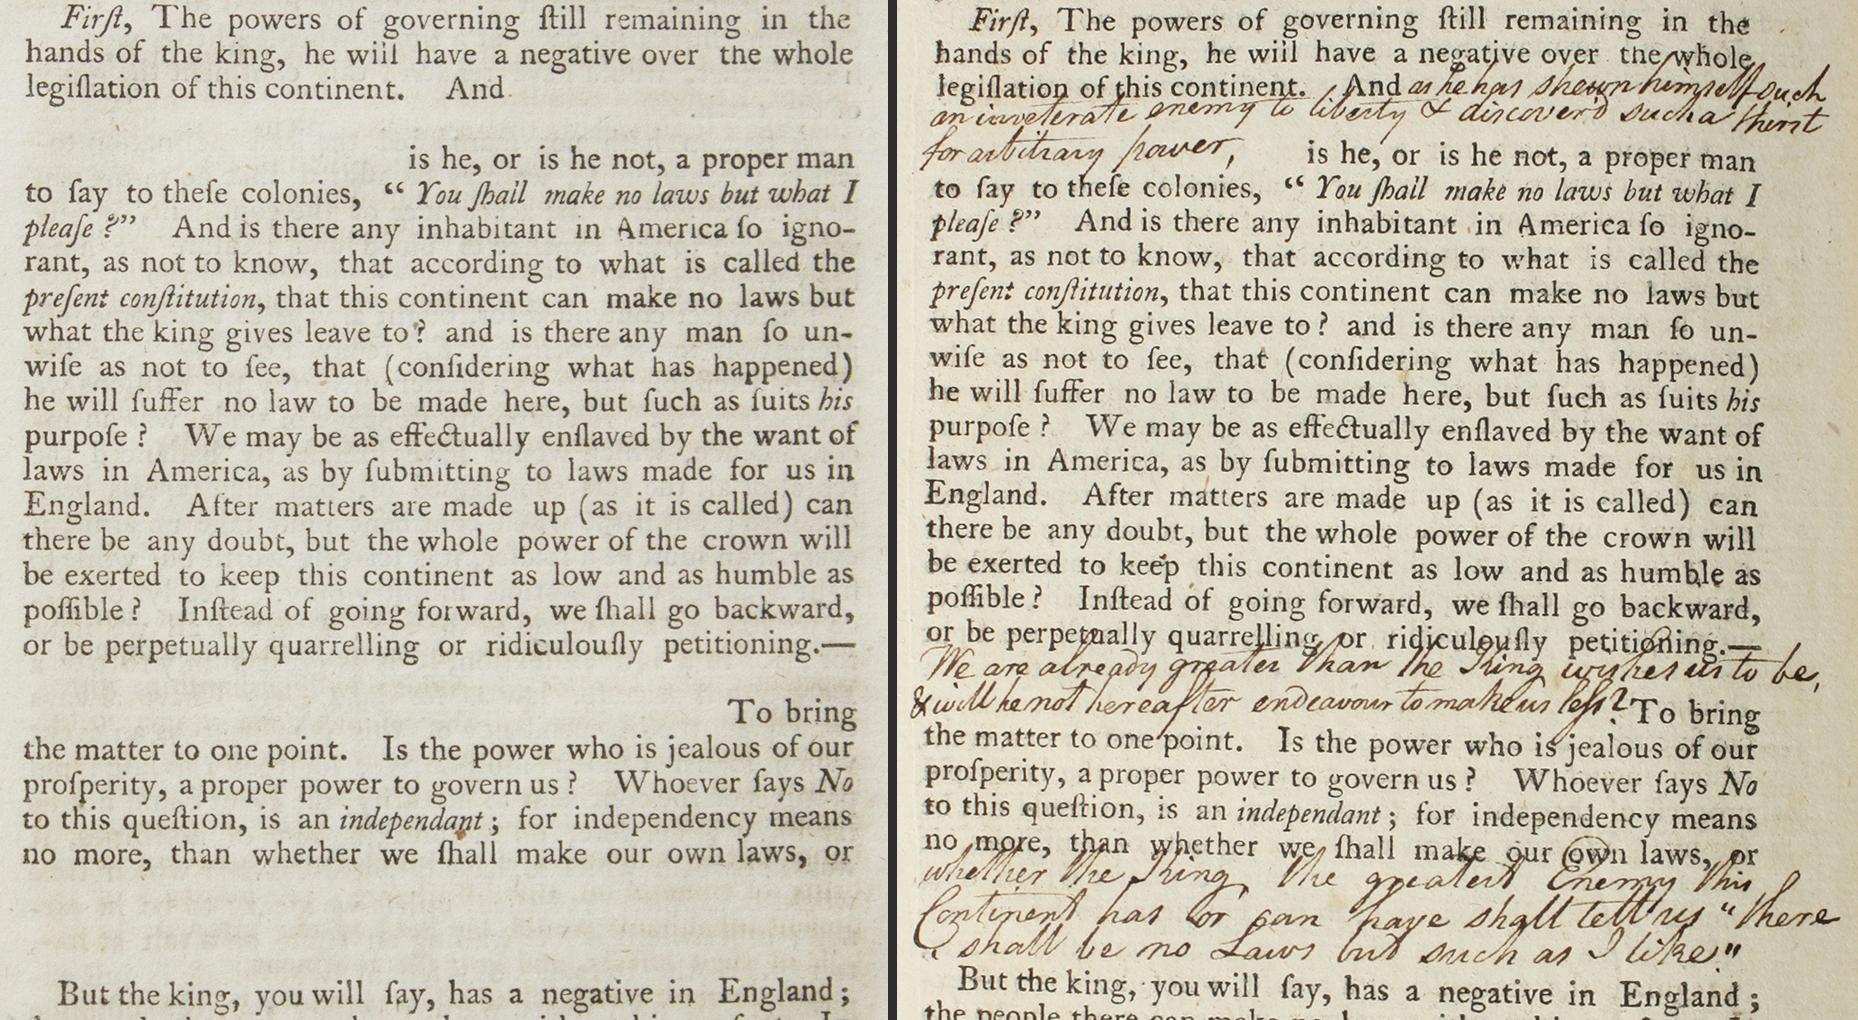 Firſt, The powers of governing ſtill remaining in the
hands of the king, he wiil have a negative over the whole
legiſlation of this continent. And
is he, or is he not, a proper man
to ſay to theſe colonies, “ You ſhall make no laws but what I
pleaſe ?” And is there any inhabitant in America ſo igno-
rant, as not to know, that according to what is called the
preſent conſtitution, that this continent can make no laws but
what the king gives leave to ? and is there any man ſo un-
wiſe as not to ſee, that (conſidering what has happened)
he will ſuffer no law to be made here, but ſuch as ſuits his
purpoſe ? We may be as effectually enſlaved by the want of
laws in America, as by ſubmitting to laws made for us in
England. After matters are made up (as it is called) can
there be any doubt, but the whole power of the crown will
be exerted to keep this continent as low and as humble as
poſſible ? Inſtead of going forward, we ſhall go backward,
or be perpetually quarrelling or ridiculouſly petitioning.—
To bring
the matter to one point. Is the power who is jealous of our
proſperity, a proper power to govern us ? Whoever ſays No
to this queſtion, is an independant ; for independency means
no more, than whether we ſhall make our own laws, or
But the king, you will ſay, has a negative in England ;
Firſt, The powers of governing ſtill remaining in the
hands of the king, he wiil have a negative over the whole
legiſlation of this continent. And as he has shewn himself such
an inveterate enemy to liberty & discover'd such a thirst
for arbitrary power, is he, or is he not, a proper man
to ſay to theſe colonies, “ You ſhall make no laws but what I
pleaſe ?” And is there any inhabitant in America ſo igno-
rant, as not to know, that according to what is called the
preſent conſtitution, that this continent can make no laws but
what the king gives leave to ? and is there any man ſo un-
wiſe as not to ſee, that (conſidering what has happened)
he will ſuffer no law to be made here, but ſuch as ſuits his
purpoſe ? We may be as effectually enſlaved by the want of
laws in America, as by ſubmitting to laws made for us in
England. After matters are made up (as it is called) can
there be any doubt, but the whole power of the crown will
be exerted to keep this continent as low and as humble as
poſſible ? Inſtead of going forward, we ſhall go backward,
or be perpetually quarrelling or ridiculouſly petitioning.—
We are already greater than the King wishes us to be,
& will he not hereafter endeavour to make us leſs? To bring
the matter to one point. Is the power who is jealous of our
proſperity, a proper power to govern us ? Whoever ſays No
to this queſtion, is an independant ; for independency means
no more, than whether we ſhall make our own laws, or
whether the King, the greatest Enemy this
Continent has or can have shall tell us “there
shall be no Laws but such as I like”
But the king, you will ſay, has a negative in England ;
the people there can make no